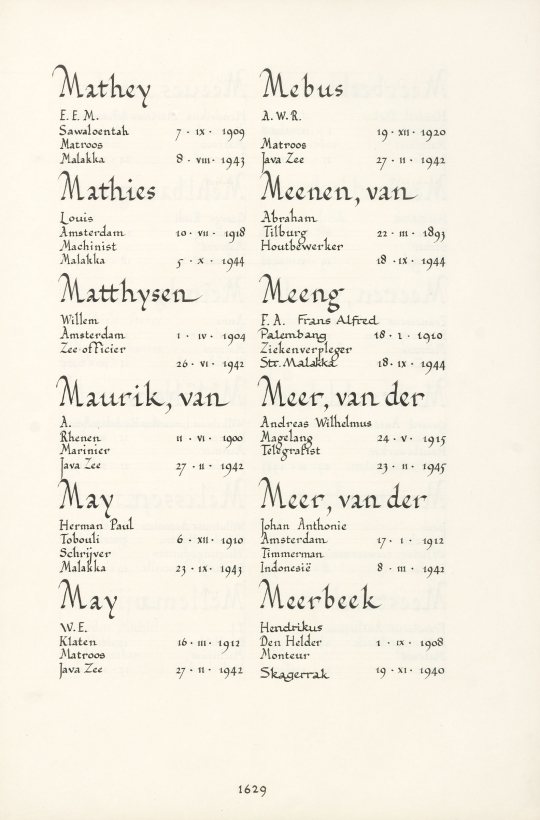 Mathey
E. E. M.
Sawaloentah 7 · IX · 1909
Matroos
Malakka 8 · VIII · 1943
Mathies
Louis
Amsterdam 10 · VII · 1918
Machinist
Malakka 5 · X · 1944
Matthysen
Willem
Amsterdam 1 · IV · 1904
Zee officier
26 · VI · 1942
Maurik, van
A.
Rhenen 11 · VI · 1900
Marinier
Java Zee 27 · II · 1942
May
Herman Paul
Tobouli 6 · XII · 1910
Schrijver
Malakka 23 · IX · 1943
May
W. E.
Klaten 16 · III · 1912
Matroos
Java Zee 27 · II · 1942
Mebus
A. W. R.
19 · XII · 1920
Matroos
Java Zee 27 · II · 1942
Meenen, van
Abraham
Tilburg 22 · III · 1893
Houtbewerker
18 · IX · 1944
Meeng
F. A. Frans Alfred
Palembang 18 · I · 1910
Ziekenverpleger
Str. Malakka 18 · IX · 1944
Meer, van der
Andreas Wilhelmus
Magelang 24 · V · 1915
Telegrafist
23 · II · 1945
Meer, van der
Johan Anthonie
Amsterdam 17 · I · 1912
Timmerman
Indonesië 8 · III · 1942
Meerbeek
Hendrikus
Den Helder 1 · IX · 1908
Monteur
Skagerrak 19 · XI · 1940
1629